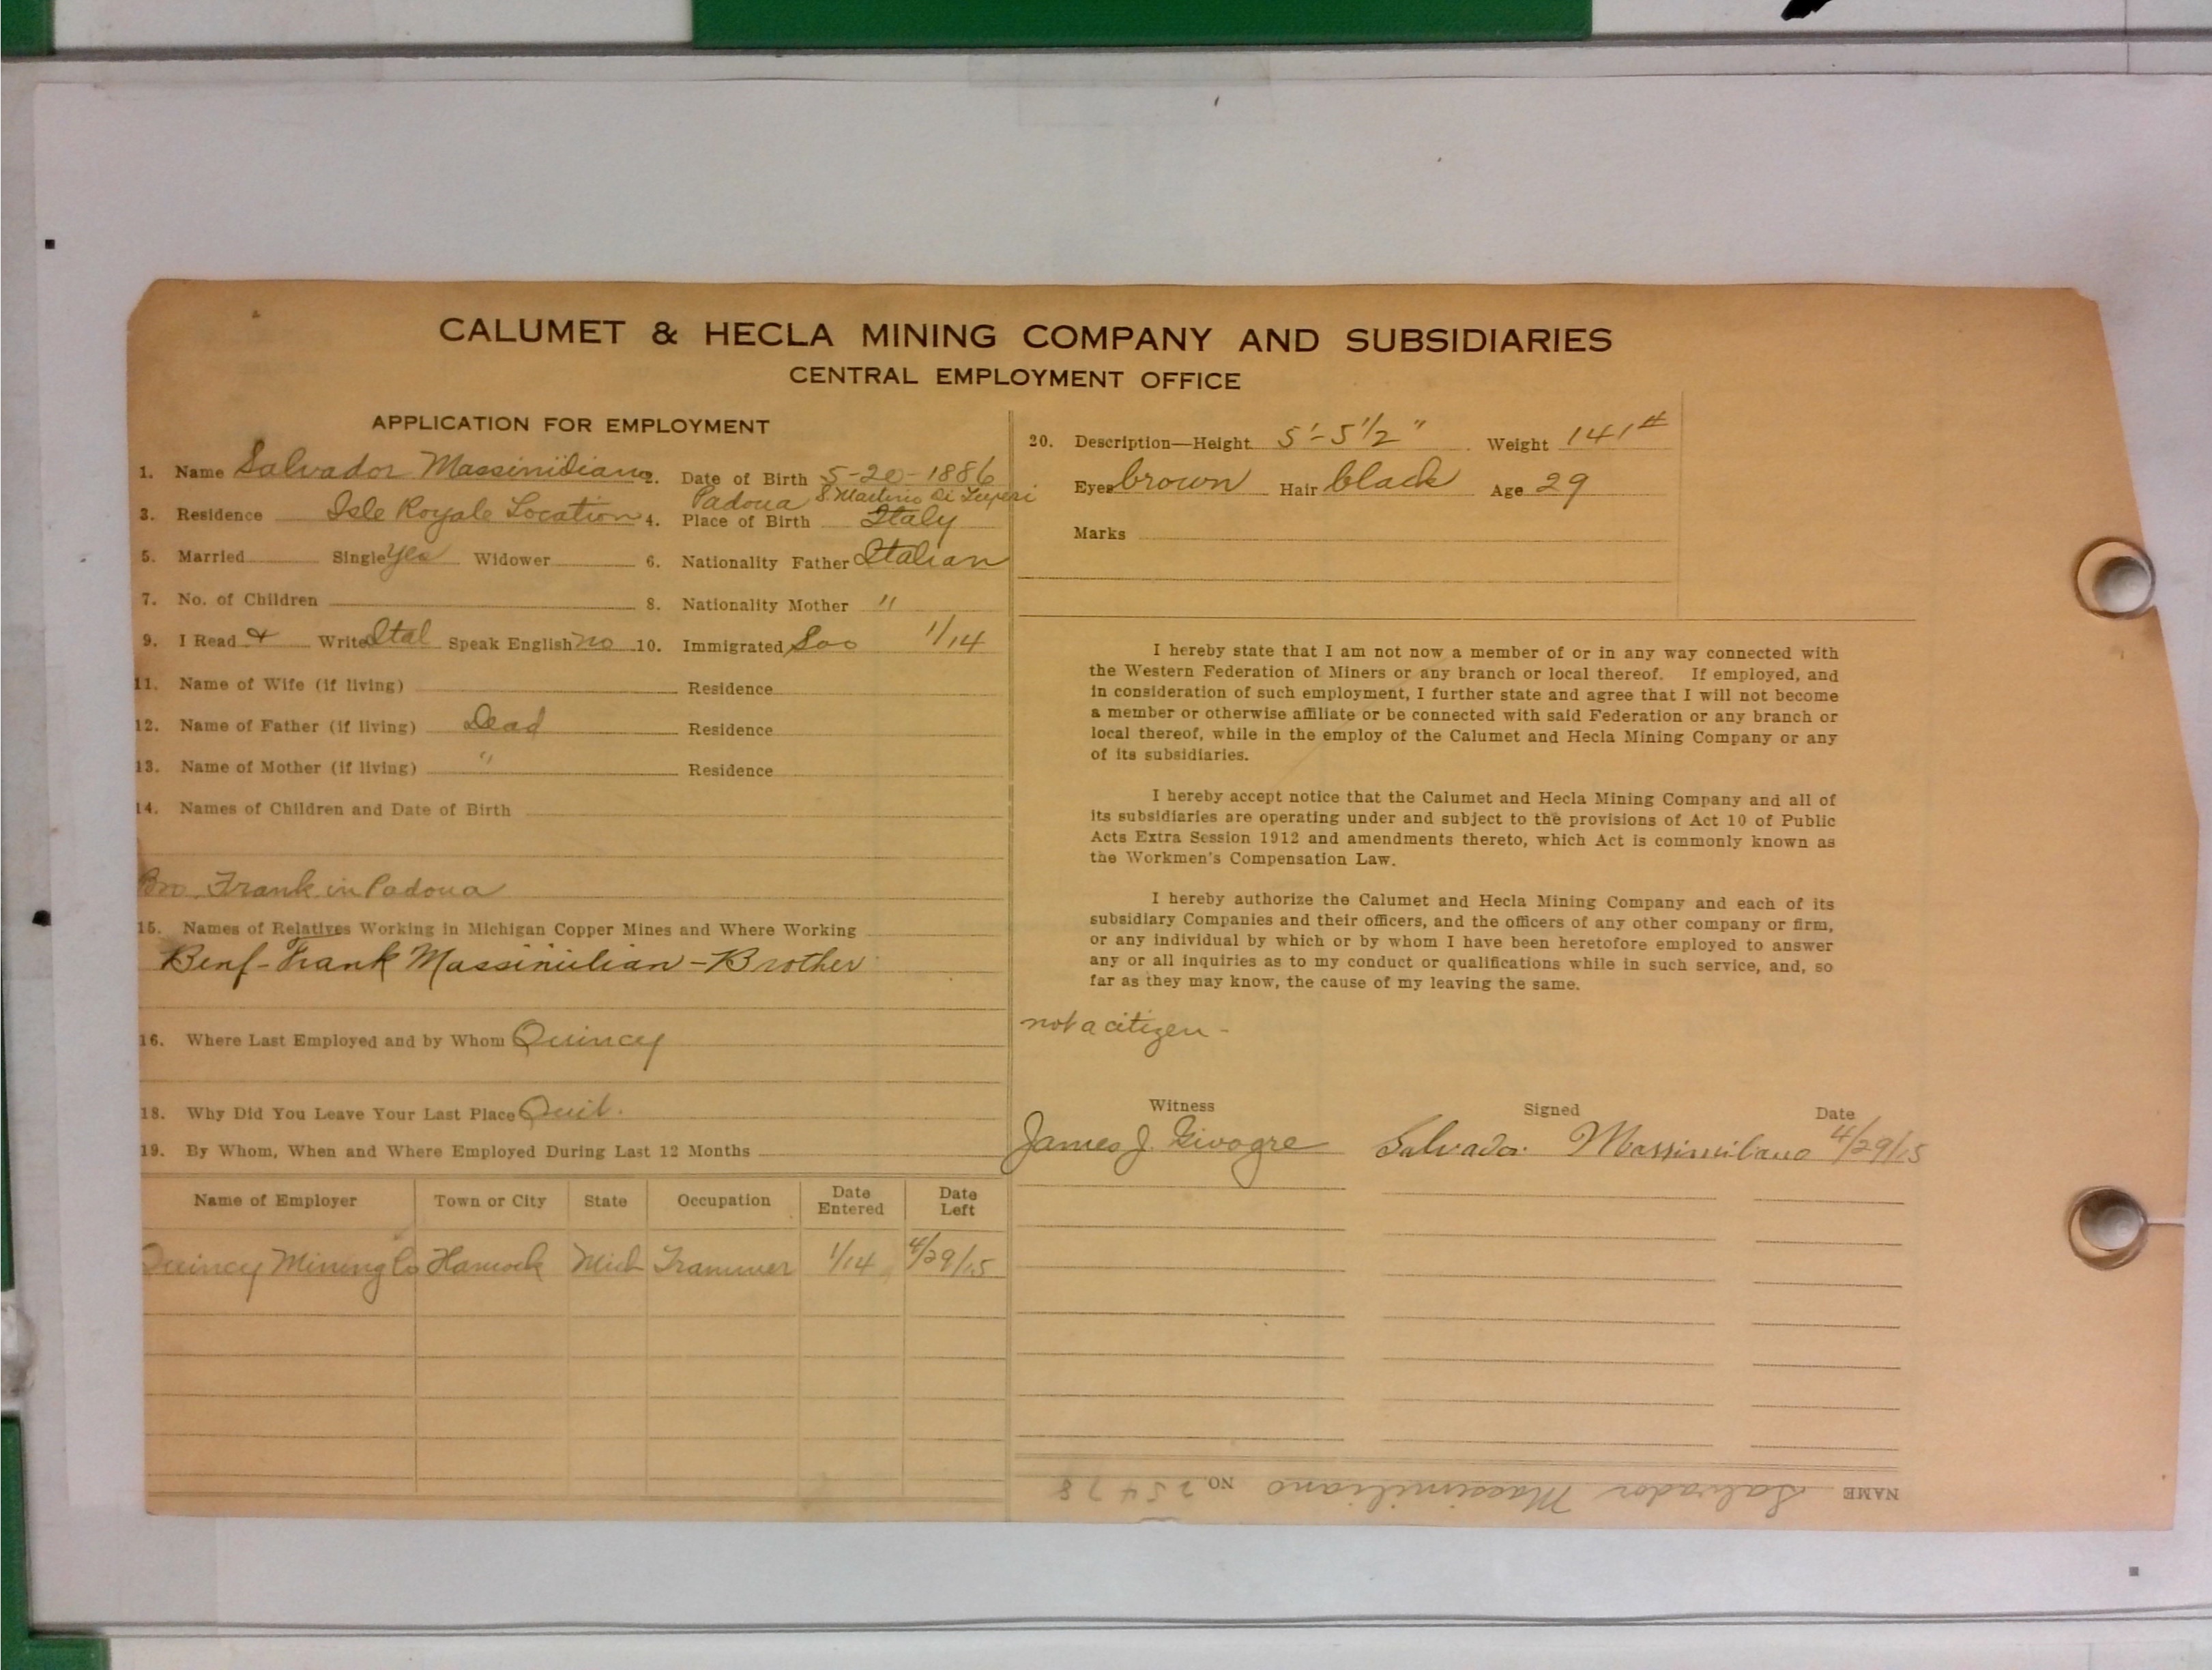 CALUMET & HECLA MINING COMPANY AND SUBSIDIARIES
CENTRAL EMPLOYMENT OFFICE
APPLICATION FOR EMPLOYMENT
1. Name Salvador Massimiliano 2. Date of Birth 5-20-1886
Padoua S. Martino di Luperi
3. Residence Isle Royale Location 4. Place of Birth Italy
5. Married Single Yes Widower 6. Nationality Father Italian
7. No. of Children 8. Nationality Mother "
9. I Read & Write Ital Speak English no 10. Immigrated Soo 1/14
11. Name of Wife (if living) Residence
12. Name of Father (if living) Dead Residence
13. Name of Mother (if living) " Residence
14. Names of Children and Date of Birth
Bro. Frank in Padoua
15. Names of Relatives Working in Michigan Copper Mines and Where Working
Benf-Frank Massimilian-Brother
16. Where Last Employed and by Whom Quincy
18. Why Did You Leave Your Last Place Quit.
19. By Whom, When and Where Employed During Last 12 Months
Name of Employer Town or City State Occupation Date Entered Date Left
Quincy Mining Co Hancock Mich Trammer 1/14 4/29/15
20. Description—Height 5'-5 1/2" Weight 141#
Eyes brown Hair black Age 29
Marks
I hereby state that I am not now a member of or in any way connected with
the Western Federation of Miners or any branch or local thereof. If employed, and
in consideration of such employment, I further state and agree that I will not become
a member or otherwise affiliate or be connected with said Federation or any branch or
local thereof, while in the employ of the Calumet and Hecla Mining Company or any
of its subsidiaries.
I hereby accept notice that the Calumet and Hecla Mining Company and all of
its subsidiaries are operating under and subject to the provisions of Act 10 of Public
Acts Extra Session 1912 and amendments thereto, which Act is commonly known as
the Workmen's Compensation Law.
I hereby authorize the Calumet and Hecla Mining Company and each of its
subsidiary Companies and their officers, and the officers of any other company or firm,
or any individual by which or by whom I have been heretofore employed to answer
any or all inquiries as to my conduct or qualifications while in such service, and, so
far as they may know, the cause of my leaving the same.
not a citizen -
Witness Signed Date
James J. Givogre Salvador Massimiliano 4/29/15
NAME Salvador Massimiliano NO. 25478